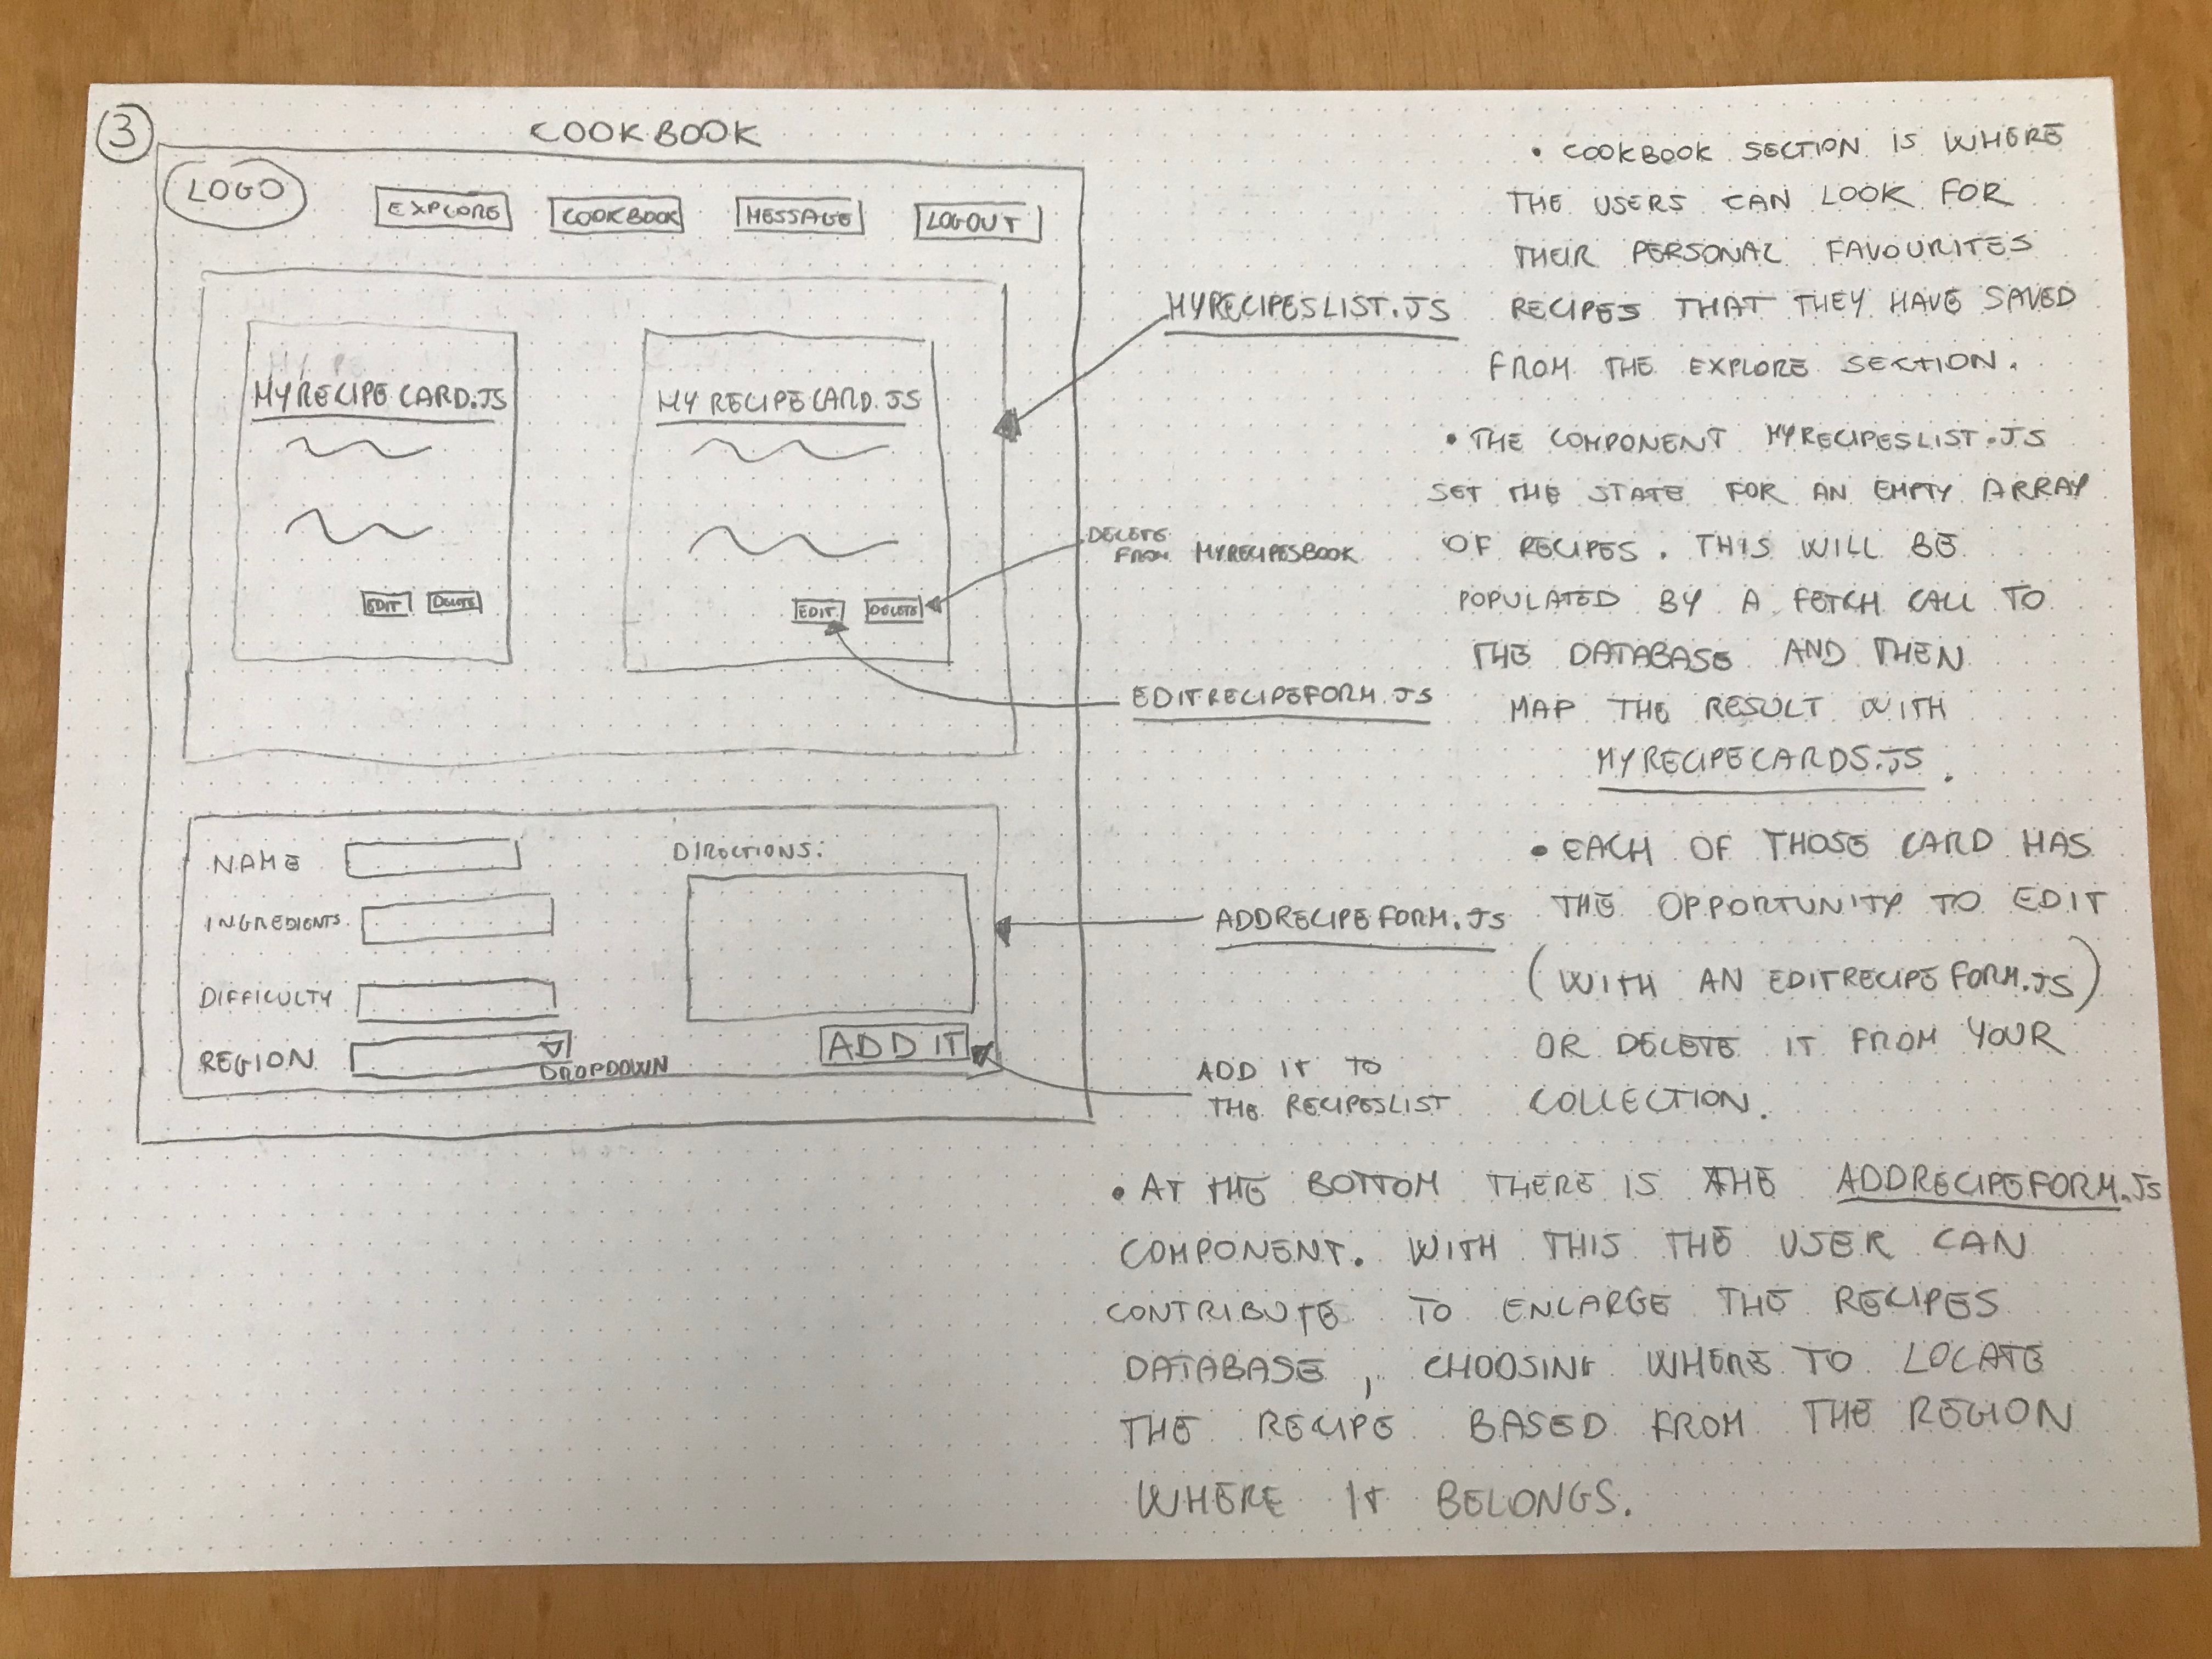 3
COOKBOOK
LOGO
EXPLORE
COOKBOOK
MESSAGE
LOGOUT
MYRECIPECARD.JS
EDIT
DELETE
MYRECIPECARD.JS
EDIT
DELETE
MYRECIPESLIST.JS
DELETE
FROM MYRECIPESBOOK
EDITRECIPEFORM.JS
NAME
INGREDIENTS
DIFFICULTY
REGION
DROPDOWN
DIRECTIONS:
ADD IT
ADDRECIPEFORM.JS
ADD IT TO
THE RECIPESLIST
• COOKBOOK SECTION IS WHERE
THE USERS CAN LOOK FOR
THEIR PERSONAL FAVOURITES
RECIPES THAT THEY HAVE SAVED
FROM THE EXPLORE SECTION.
• THE COMPONENT MYRECIPESLIST.JS
SET THE STATE FOR AN EMPTY ARRAY
OF RECIPES. THIS WILL BE
POPULATED BY A FETCH CALL TO
THE DATABASE AND THEN
MAP THE RESULT WITH
MYRECIPECARDS.JS.
• EACH OF THOSE CARD HAS
THE OPPORTUNITY TO EDIT
(WITH AN EDITRECIPEFORM.JS)
OR DELETE IT FROM YOUR
COLLECTION.
• AT THE BOTTOM THERE IS THE ADDRECIPEFORM.JS
COMPONENT. WITH THIS THE USER CAN
CONTRIBUTE TO ENLARGE THE RECIPES
DATABASE, CHOOSING WHERE TO LOCATE
THE RECIPE BASED FROM THE REGION
WHERE IT BELONGS.